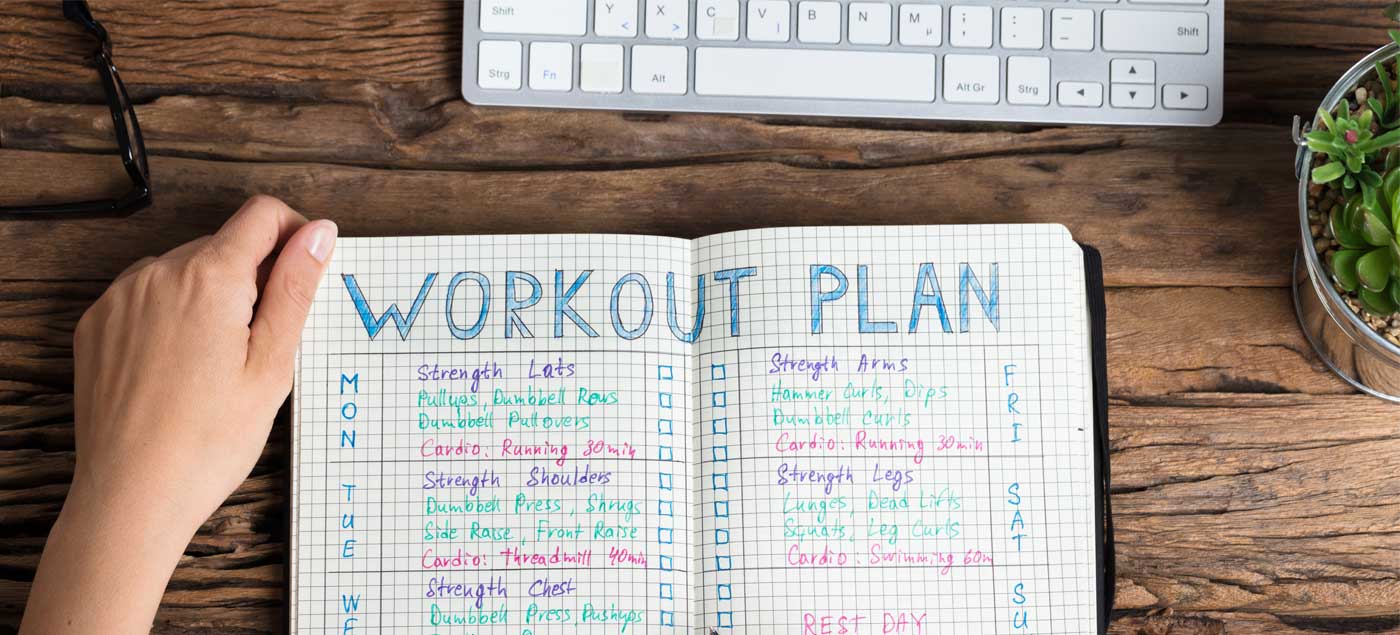 Shift Y X C V B N M ; : – Shift
< > | µ , .
Strg Fn Alt Alt Gr Strg
WORKOUT PLAN
MON
Strength Lats
Pullups, Dumbbell Rows
Dumbbell Pullovers
Cardio: Running 30min
TUE
Strength Shoulders
Dumbbell Press, Shrugs
Side Raise, Front Raise
Cardio: Threadmill 40min
WE
Strength Chest
Dumbbell Press, Pushups
Strength Arms
Hammer Curls, Dips
Dumbbell Curls
Cardio: Running 30min
FRI
Strength Legs
Lunges, Dead Lifts
Squats, Leg Curls
Cardio: Swimming 60m
SAT
REST DAY
SU